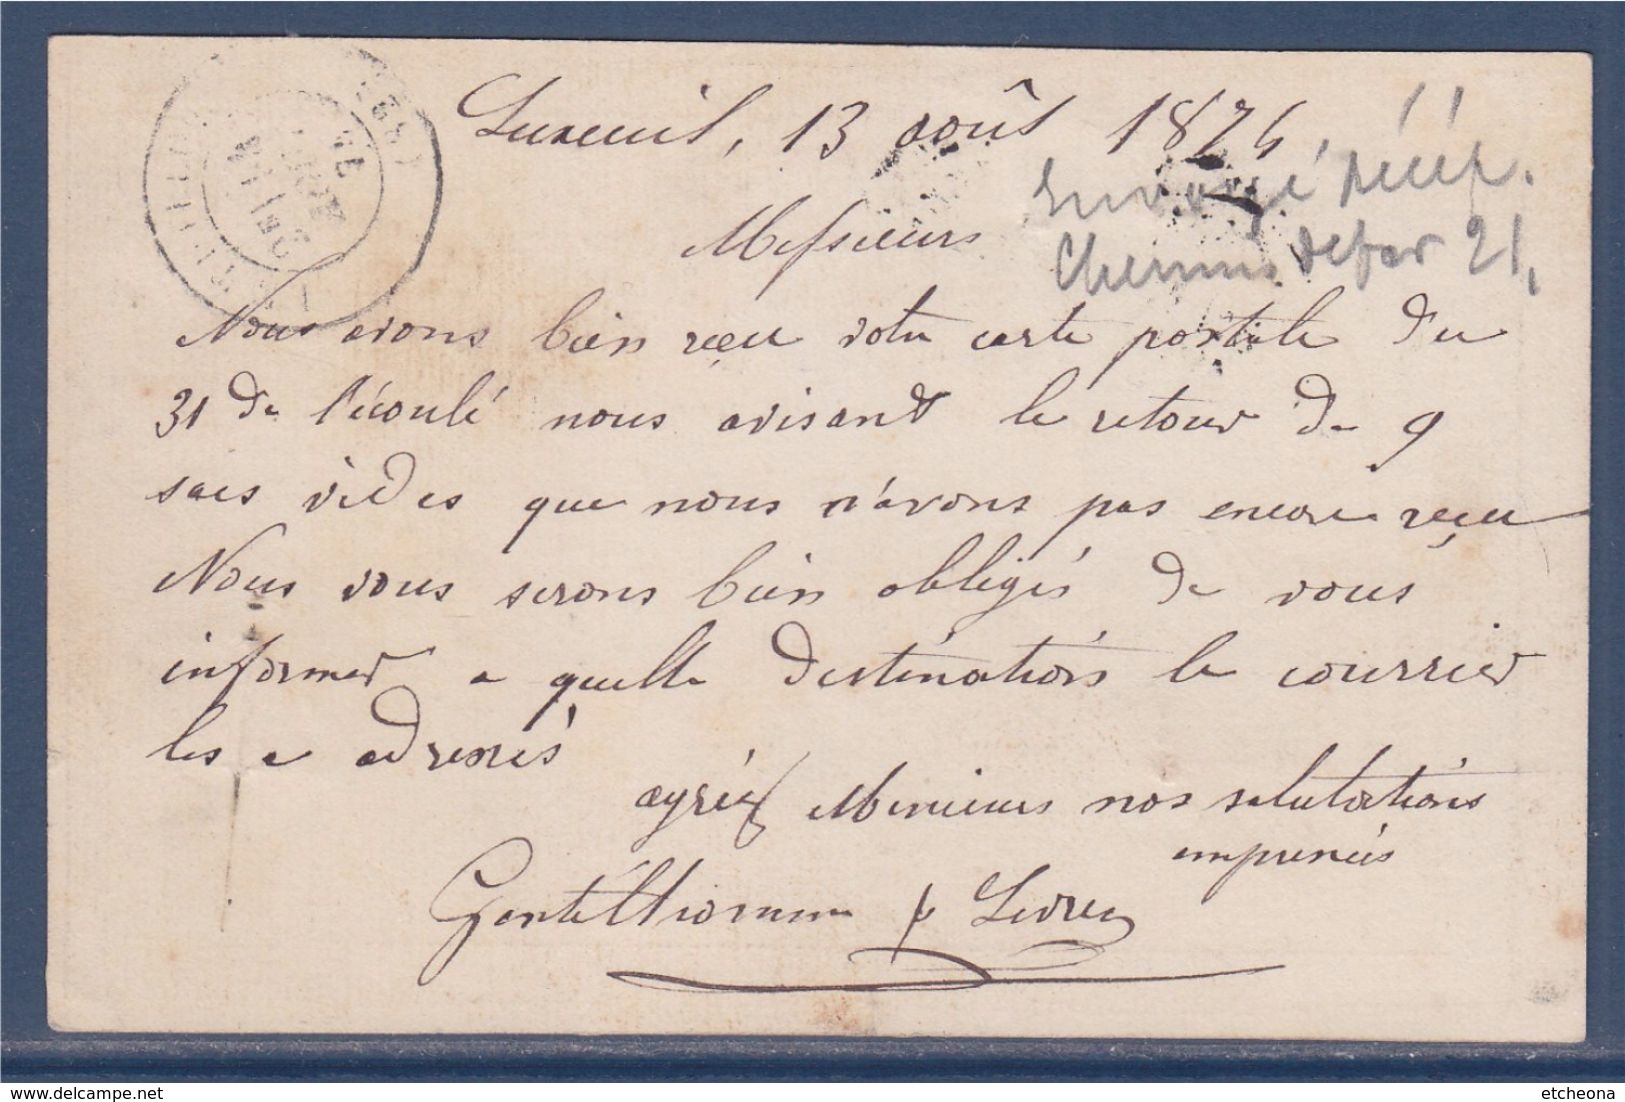 Luxeuil, 13 août 1874
Envoyé récép.
Chemins de fer 21.
Messieurs
Nous avons bien reçu votre carte postale du
31 de l'écoulé nous avisant le retour de 9
sacs vides que nous n'avons pas encore reçu
Nous vous serons bien obligés de nous
informer a quelle destination le courrier
les a adressés
agréez Messieurs nos salutations
empressées
Gentilhomme p
etcheona